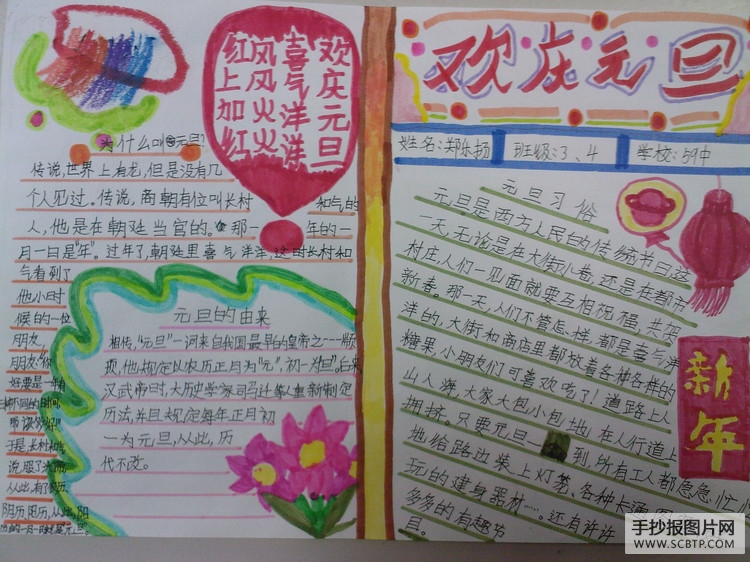 欢庆元旦
喜气洋洋
风风火火
红上加红
为什么叫元旦?
传说,世界上有龙,但是没有几
个人见过。传说,商朝有位叫长村和气的
人,他是在朝廷当官的。那一年的一
月一日是"年"。过年了,朝廷里喜气洋洋,这时长村和
气看到了
他小时
候的一位
朋友,
元旦的由来
相传,"元旦"一词来自我国最早的皇帝之一
他规定以农历正月为"元",初一为"旦",后来
汉武帝时,大历史学家司马迁等人重新制定
历法,并且规定每年正月初
一为元旦,从此,历
代不改。
欢庆元旦
姓名:郑乐扬 班级:3、4 学校:59中
元旦习俗
元旦是西方人民的传统节日这
一天,无论是在大街小巷,还是在都市
村庄,人们一见面就要互相祝福,共贺
新春。那一天,人们不管怎样,都是喜气洋
洋的,大街和商店里都放着各种各样的
糖果,小朋友们可喜欢吃了!道路上人
山人海,大家大包小包地,在人行道上
拥挤。只要元旦一到,所有工人都急急忙忙
地给路边装上灯笼、各种卡通图
玩的建身器材……。还有许许
多多的有趣节
目。
新年
手抄报图片网
WWW.SCBTP.COM